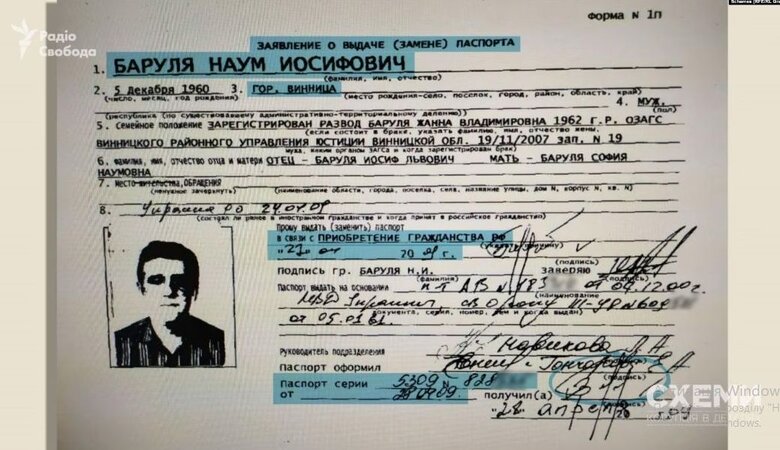 Радіо
Свобода
Schemes (RFE/RL
ФОРМА N 1П
ЗАЯВЛЕНИЕ О ВЫДАЧЕ (ЗАМЕНЕ) ПАСПОРТА
1. БАРУЛЯ НАУМ ИОСИФОВИЧ
(фамилия, имя, отчество)
2. 5 декабря 1960 3. ГОР. ВИННИЦА
(число, месяц, год рождения) (место рождения-село, поселок, город, район, область, край)
4. МУЖ.
(республика (по существовавшему административно-территориальному делению)) (пол)
5. Семейное положение ЗАРЕГИСТРИРОВАН РАЗВОД БАРУЛЯ ЖАННА ВЛАДИМИРОВНА 1962 Г.Р. ОЗАГС
(если состоит в браке, указать фамилию, имя, отчество жены,
ВИННИЦКОГО РАЙОННОГО УПРАВЛЕНИЯ ЮСТИЦИИ ВИННИЦКОЙ ОБЛ. 19/11/2007 зап. N 19
мужа, каким органом ЗАГСа и когда зарегистрирован брак)
6. фамилия, имя, отчество отца и матери ОТЕЦ - БАРУЛЯ ИОСИФ ЛЬВОВИЧ МАТЬ - БАРУЛЯ СОФИЯ
НАУМОВНА
7. место жительства, ОБРАЩЕНИЯ
(ненужное зачеркнуть) (наименование области, города, поселка, села, название улицы, дом N, корпус N, кв. N)
8. Украина до 24.04.09
(состоял ли ранее в иностранном гражданстве и когда принят в российское гражданство)
Прошу выдать (заменить) паспорт
в связи с ПРИОБРЕТЕНИЕ ГРАЖДАНСТВА РФ
20 09 г.
(подпись)
подпись гр. БАРУЛЯ Н.И. заверяю
(фамилия) (подпись)
Паспорт выдать на основании п-т АВ N 483 от 04.12.00 г.
(наименование
МВД Украины
документа, серия, номер, кем и когда выдан)
от 05.01.61.
Руководитель подразделения Новикова
Паспорт оформил
(подпись)
Паспорт серии 5309 N 828
от 28.04.09. получил(а)
(подпись)
"28" апреля 20 09
СХЕМИ
КОРУПЦІЯ В ДЕТАЛЯХ
Window
розділу "Н
indows.